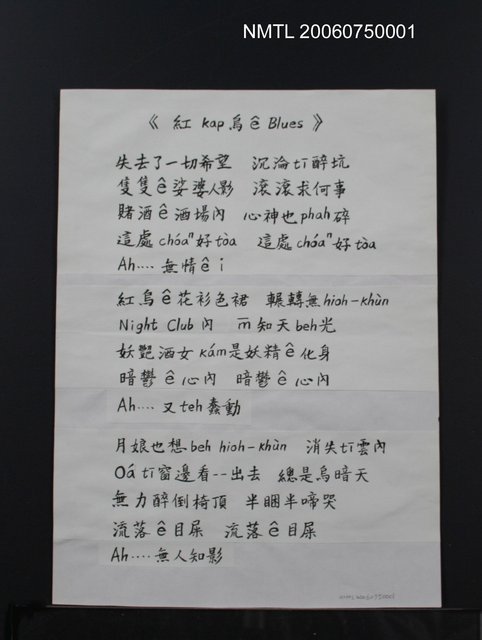 NMTL 20060750001
《 紅 kap 烏 ê Blues 》
失去了一切希望 沉淪 tī 醉坑
隻隻 ê 娑婆人影 滾滾求何事
賭酒 ê 酒場內 心神也 phah 碎
這處 chóaⁿ 好 tòa 這處 chóaⁿ 好 tòa
Ah‥‥ 無情 ê i
紅烏 ê 花衫色裙 輾轉無 hioh-khùn
Night Club 內 m̄ 知天 beh 光
妖艷酒女 kám 是妖精 ê 化身
暗鬱 ê 心內 暗鬱 ê 心內
Ah‥‥ 又 teh 蠢動
月娘也想 beh hioh-khùn 消失 tī 雲內
Oá tī 窗邊看--出去 總是烏暗天
無力醉倒椅頂 半睏半啼哭
流落 ê 目屎 流落 ê 目屎
Ah‥‥ 無人知影
NMTL 20060750001